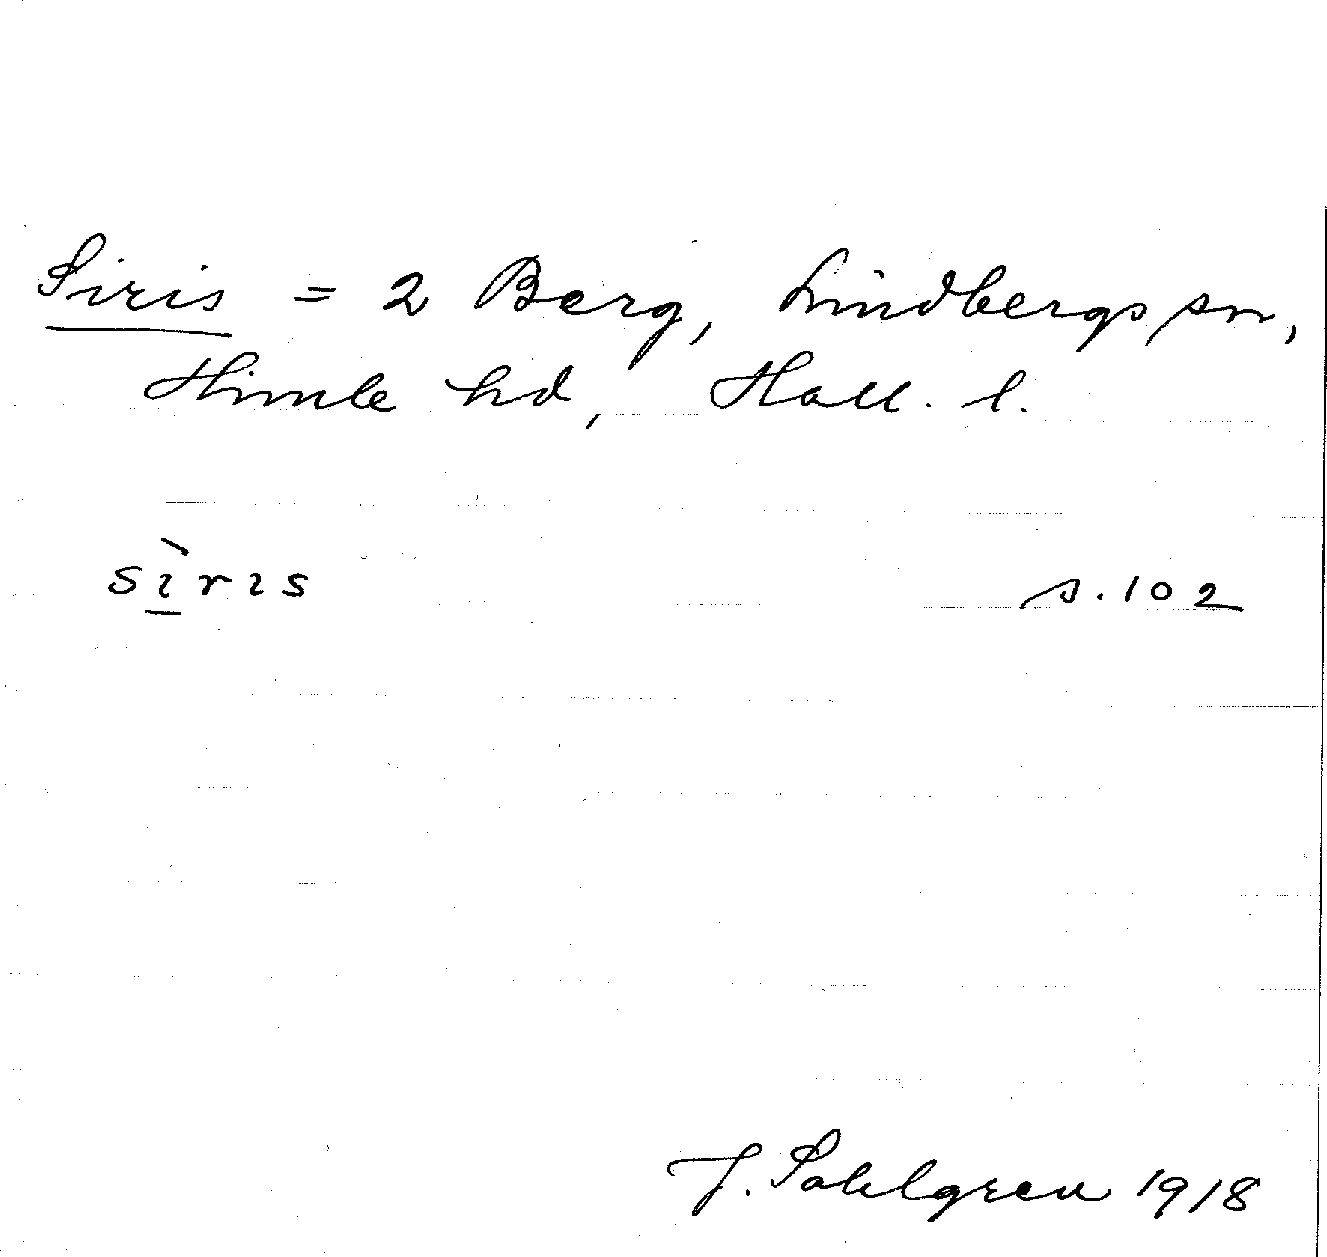 Siris = 2 Berg, Lindbergs sn,
Himle hd, Hall. l.
sìris s. 102
J. Sahlgren 1918